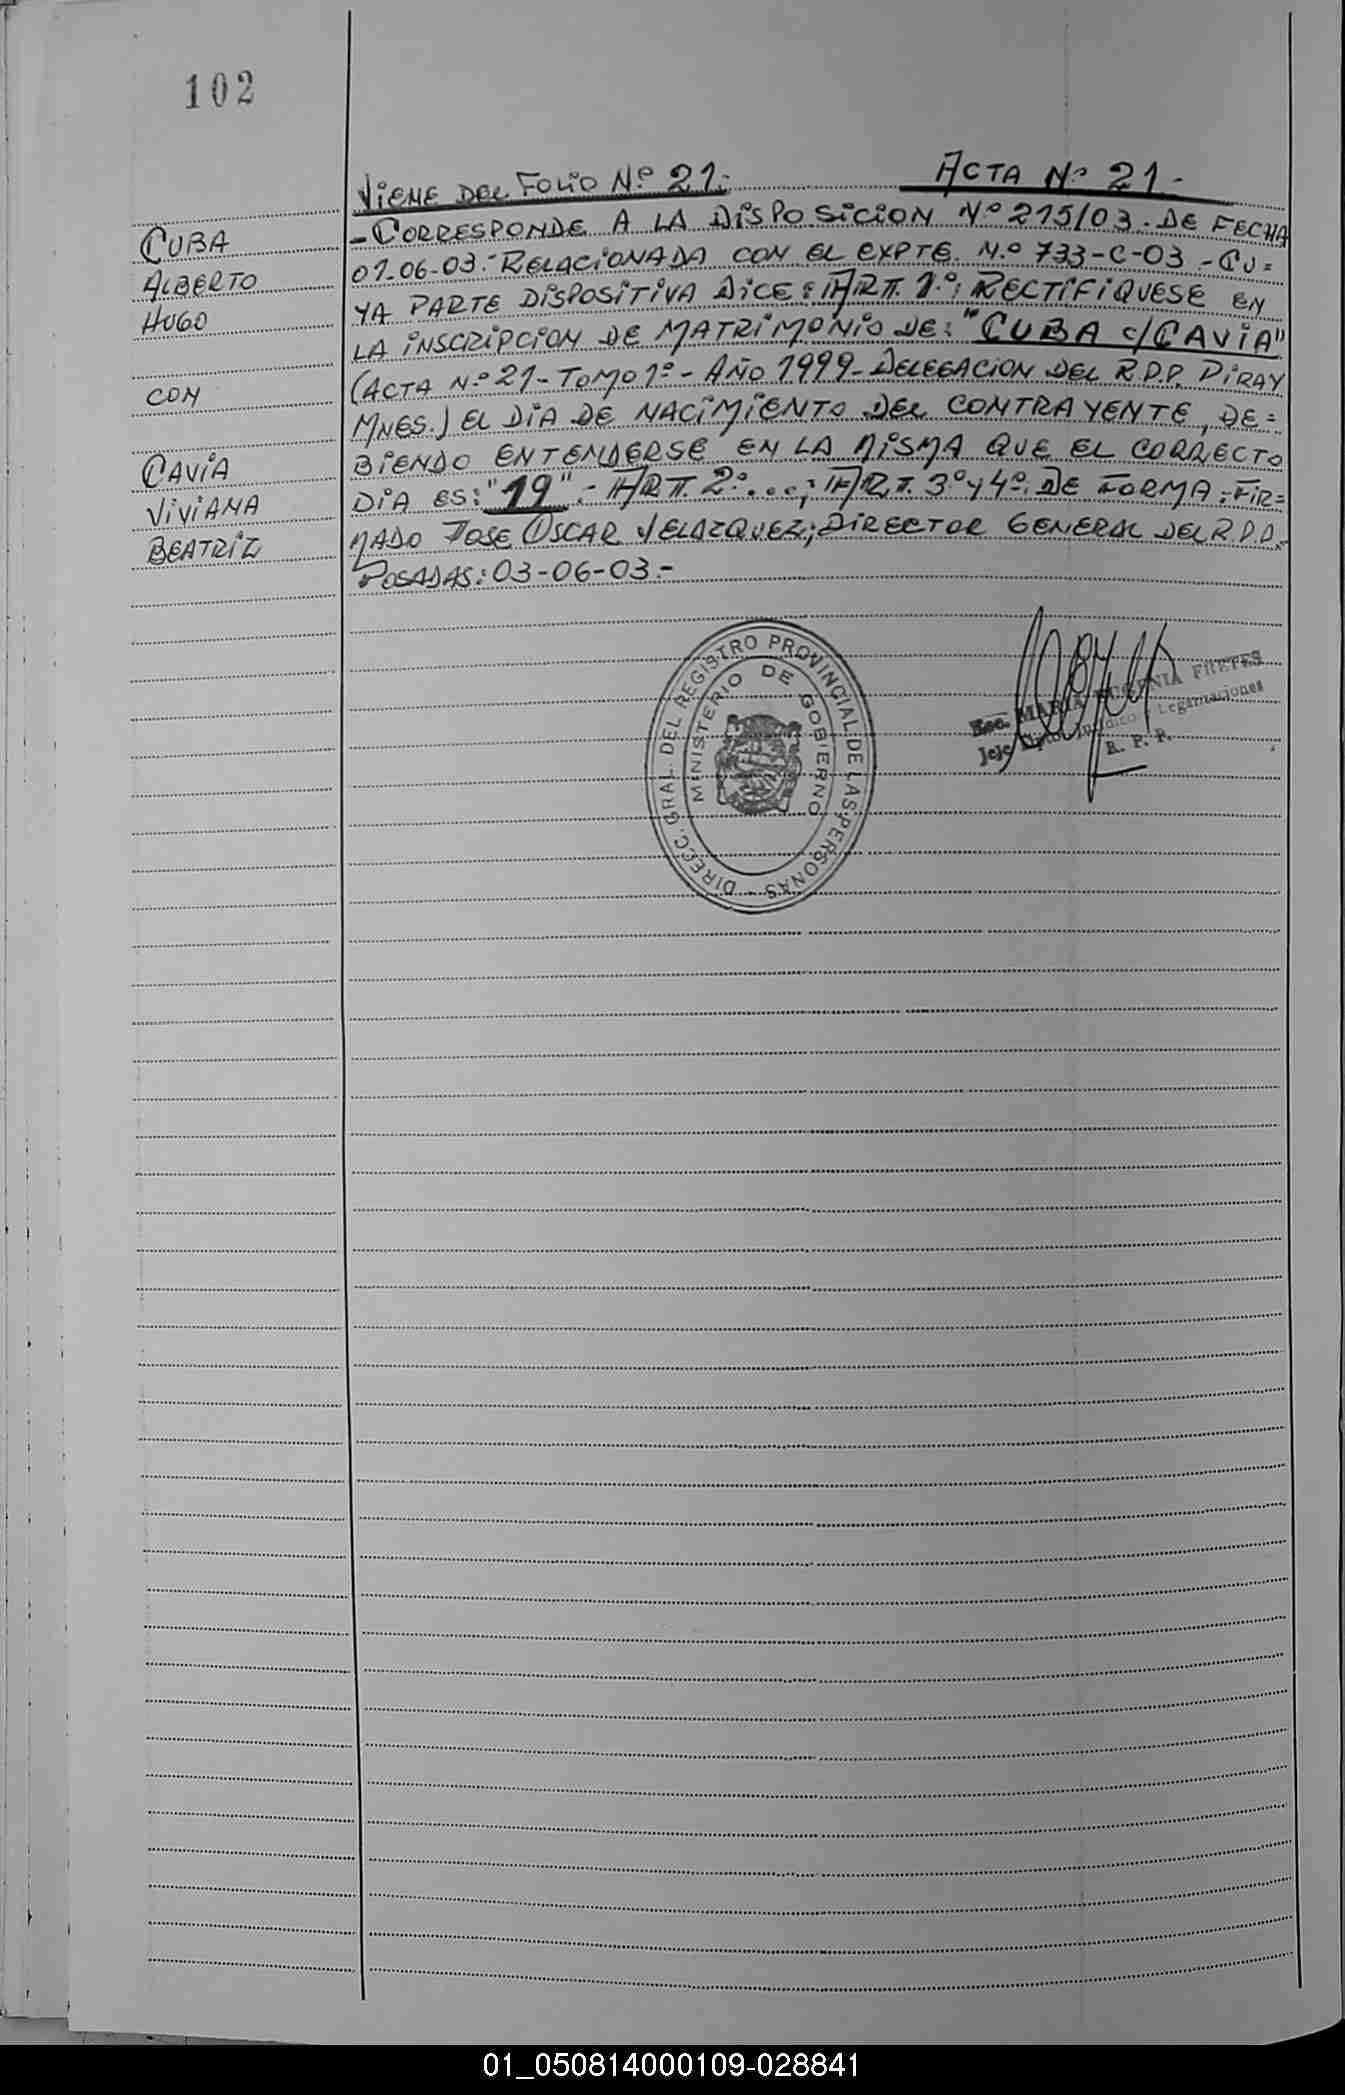 102
VIENE DEL FOLIO Nº 21.- ACTA Nº 21-
CUBA
ALBERTO
HUGO
CON
CAVIA
VIVIANA
BEATRIZ
- CORRESPONDE A LA DISPOSICION Nº 215/03. DE FECHA
01-06-03.- RELACIONADA CON EL EXPTE. Nº 733-C-03 - CU=
YA PARTE DISPOSITIVA DICE: ART. 1º: RECTIFIQUESE EN
LA INSCRIPCION DE MATRIMONIO DE: "CUBA c/CAVIA"
(ACTA Nº 21 - TOMO 1º - AÑO 1999 - DELEGACION DEL R.P.P. PIRAY
MNES.) EL DIA DE NACIMIENTO DEL CONTRAYENTE, DE=
BIENDO ENTENDERSE EN LA MISMA QUE EL CORRECTO
DIA ES: "19".- ART. 2º...; ART. 3º y 4º: DE FORMA: FIR=
MADO JOSE OSCAR VELAZQUEZ; DIRECTOR GENERAL DEL R.P.P.-
POSADAS: 03-06-03.-
DIRECC. GRAL. DEL REGISTRO PROVINCIAL DE LAS PERSONAS -
MINISTERIO DE GOBIERNO
Esc. MARIA EUGENIA FRETES
Jefe Dpto. Jurídico y Legalizaciones
R. P. P.
01_050814000109-028841